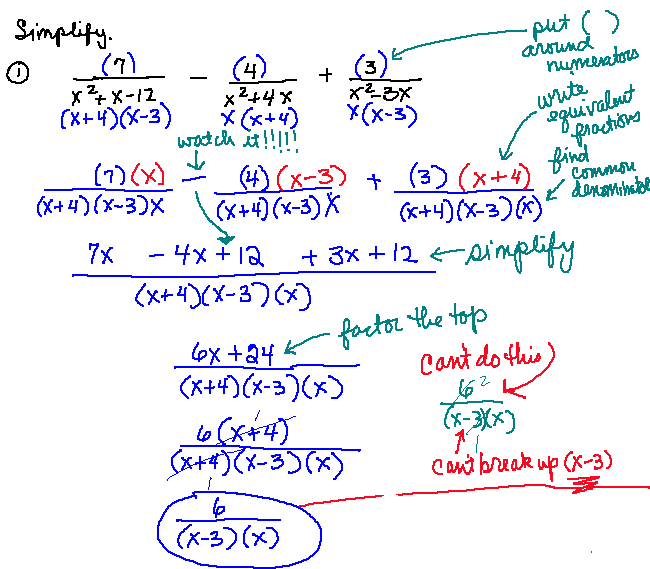 Simplify.
① (7)/(x²+x-12) - (4)/(x²+4x) + (3)/(x²-3x)
(x+4)(x-3) x(x+4) x(x-3)
put ( ) around numerators
watch it!!!!!
write equivalent fractions
(7)(x)/((x+4)(x-3)x) - (4)(x-3)/((x+4)(x-3)x) + (3)(x+4)/((x+4)(x-3)(x))
find common denominator
7x - 4x+12 + 3x+12 ← simplify
(x+4)(x-3)(x)
6x+24 factor the top
(x+4)(x-3)(x)
6(x+4)
(x+4)(x-3)(x)
1
1
6
(x-3)(x)
can't do this
6 2
(x-3)(x)
1
can't break up (x-3)